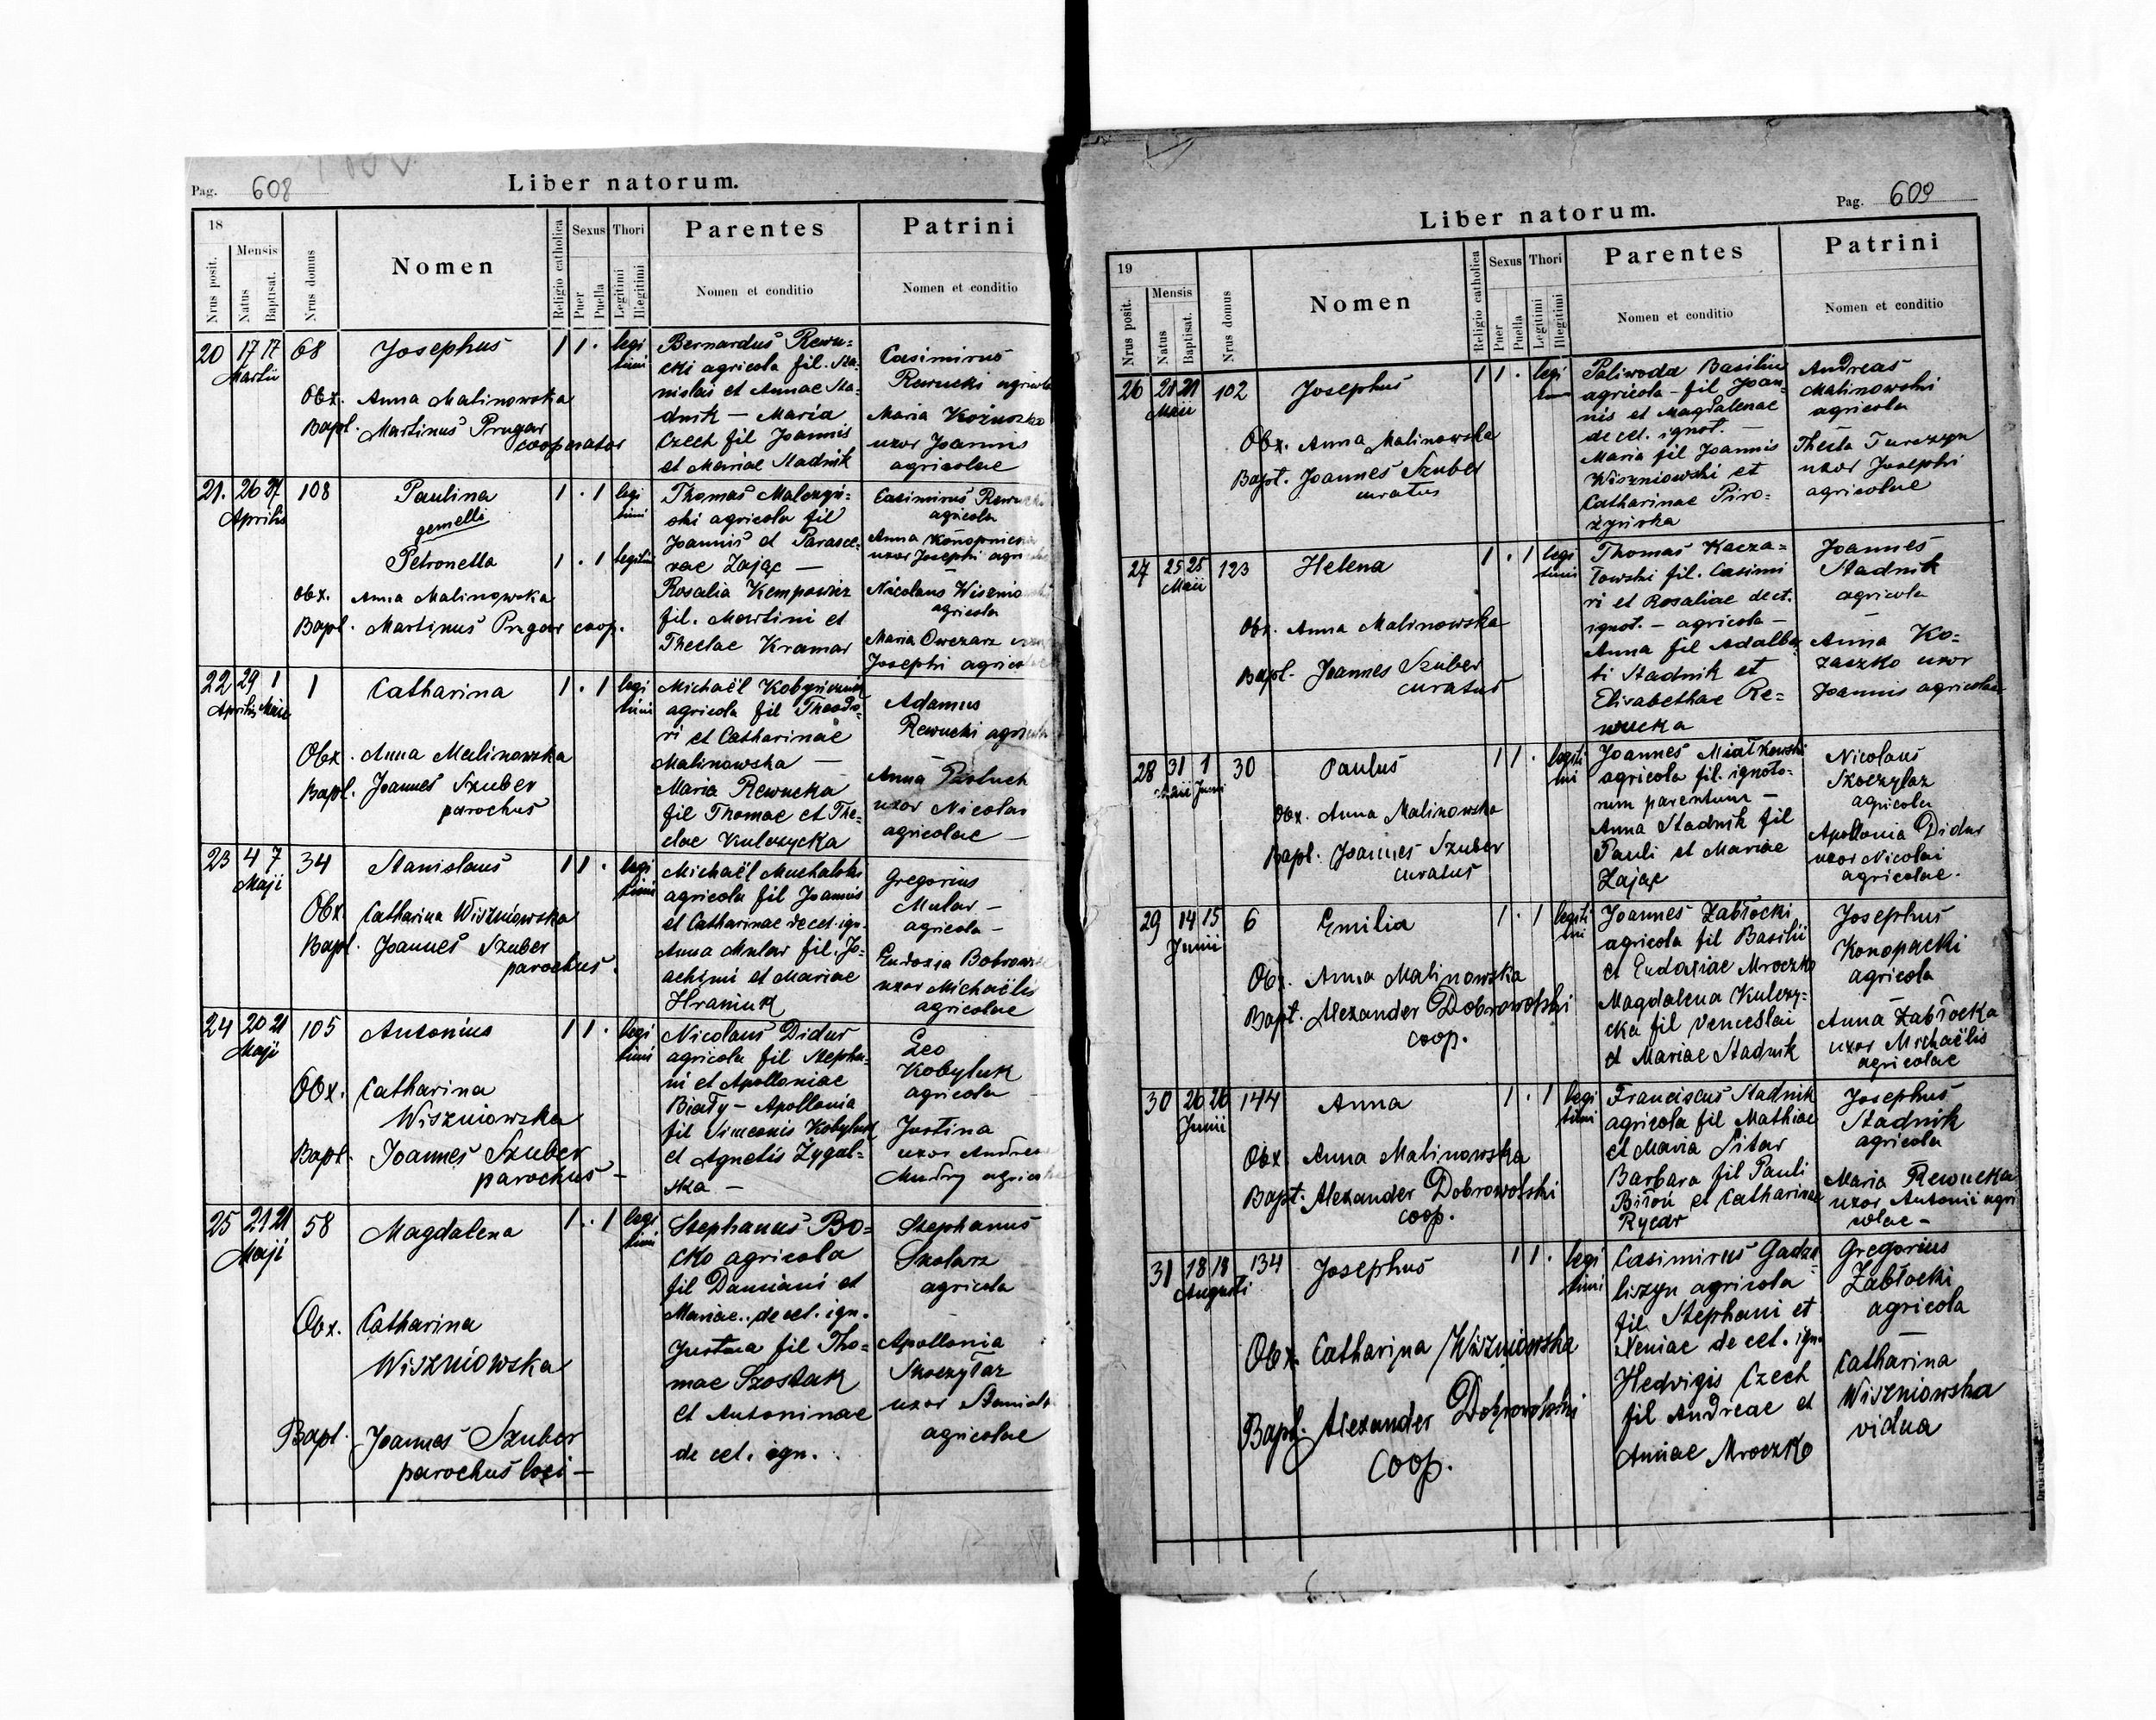 Pag. 608
Liber natorum.
18
Nrus posit.
Mensis
Natus
Baptisat.
Nrus domus
Nomen
Religio catholica
Sexus
Puer
Puella
Thori
Legitimi
Illegitimi
Parentes
Nomen et conditio
Patrini
Nomen et conditio
20 17 17 68 Josephus 1 1 . legi
Martii timi
Obx. Anna Malinowska
Bapt. Martinus Prugar
cooperator
Bernardus Rewu=
cki agricola fil. Sta-
nislai et Annae Sta-
dnik — Maria
Czech fil Joannis
et Mariae Stadnik
Casimirus
Rewucki agricola
Maria
uxor Joannis
agricolae
21. 26 27 108 Paulina 1 . 1 legi
Aprilis timi
gemelli
Petronella 1 . 1 legitimi
Obx. Anna Malinowska
Bapt. Martinus Prugar coop.
Thomas Malczyń=
ski agricola fil
Joannis et Parasce=
vae Zając —
Rosalia Kempowicz
fil. Martini et
Theclae Kramar
Casimirus
agricola
Anna Konopnicka
uxor Josephi
Nicolaus
agricola
Maria Owczarz
Josephi agricolae
22 29 1 1 Catharina 1 . 1 legi
Aprilis Maii timi
Obx. Anna Malinowska
Bapt. Joannes Szuber
parochus
Michaël
agricola fil Theodo-
ri et Catharinae
Malinowska —
Maria Rewucka
fil Thomae et The=
clae Kulczycka
Adamus
Rewucki agricola
Anna
uxor Nicolai
agricolae —
23 4 7 34 Stanislaus 1 1 . legi
Maji timi
Obx. Catharina Wiszniowska
Bapt. Joannes Szuber
parochus.
Michaël Muchalski
agricola fil Joannis
et Catharinae de cet. ign.
Anna Mular fil. Jo-
achimi et Mariae
Hraniuk
Gregorius
Mular —
agricola —
Eudoxia
uxor Michaëlis
agricolae
24 20 21 105 Antonius 1 1 . legi
Maji timi
Obx. Catharina
Wiszniowska
Bapt. Joannes Szuber
parochus —
Nicolaus Didur
agricola fil Stepha-
ni et Apolloniae
Biały — Apollonia
fil Simeonis Kobyluk
et Agnetis Zygal-
ska —
Leo
Kobyluk
agricola
Justina
uxor Andreae
Mudry agricolae
25 21 21 58 Magdalena 1 . 1 legi
Maji timi
Obx. Catharina
Wiszniowska
Bapt. Joannes Szuber
parochus loci —
Stephanus Bo=
cko agricola
fil Damiani et
Mariae.. de cet. ign.
Justina fil Tho=
mae Szostak
et Antoninae
de cet. ign.
Stephanus
Skolarz
agricola
Apollonia
Skoczylaz
uxor
agricolae
Pag. 609
Liber natorum.
19
Nrus posit.
Mensis
Natus
Baptisat.
Nrus domus
Nomen
Religio catholica
Sexus
Puer
Puella
Thori
Legitimi
Illegitimi
Parentes
Nomen et conditio
Patrini
Nomen et conditio
26 21 21 102 Josephus 1 1 . legi
Maii
Obx. Anna Malinowska
Bapt. Joannes Szuber
curatus
Paliwoda Basilius
agricola — fil Joan-
nis et Magdalenae
de cet. ignot. —
Maria fil Joannis
Wiszniowski et
Catharinae Piro=
żyńska
Andreas
Malinowski
agricola
Thecla Turczyn
uxor Josephi
agricolae
27 25 25 123 Helena 1 . 1 legi
Maii timi
Obx. Anna Malinowska
Bapt. Joannes Szuber
curatus
Thomas Kacza=
łowski fil. Casimi
ri et Rosaliae de ct.
ignot. — agricola —
Anna fil Adalber
ti Stadnik et
Elisabethae Re=
wucka
Joannes
Stadnik
agricola
Anna Ko=
zaszko uxor
Joannis agricolae
28 31 1 30 Paulus 1 1 . legiti
Maii Junii mi
Obx. Anna Malinowska
Bapt. Joannes Szuber
curatus
Joannes Miałkowski
agricola fil. ignoto-
rum parentum —
Anna Stadnik fil
Pauli et Mariae
Zając
Nicolaus
Skoczylaz
agricola
Apollonia Didur
uxor Nicolai
agricolae.
29 14 15 6 Emilia 1 . 1 legiti
Junii mi
Obx. Anna Malinowska
Bapt. Alexander Dobrowolski
coop.
Joannes Zabłocki
agricola fil Basilii
et Eudoxiae Mroczko
Magdalena Kulczy-
cka fil Venceslai
et Mariae Stadnik
Josephus
Konopacki
agricola
Anna Zabłocka
uxor Michaëlis
agricolae
30 26 26 144 Anna 1 . 1 legi
Junii timi
Obx. Anna Malinowska
Bapt. Alexander Dobrowolski
coop.
Franciscus Stadnik
agricola fil Mathiae
et Maria Sitar
Barbara fil Pauli
Biłoń et Catharinae
Rycar
Josephus
Stadnik
agricola
Maria Rewucka
uxor Antonii agri
colae —
31 18 18 134 Josephus 1 1 . legi
Augusti timi
Obx. Catharina Wiszniowska
Bapt. Alexander Dobrowolski
coop.
Casimirus Gadzi
liszyn agricola
fil Stephani et
Xeniae de cet. ign.
Hedvigis Czech
fil Andreae et
Anniae Mroczko
Gregorius
Zabłocki
agricola
Catharina
Wiszniowska
vidua